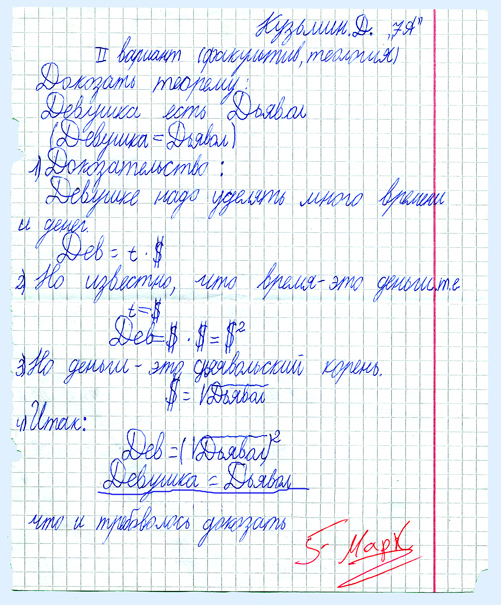 Кузьмин. Д. „7А"
II вариант (факультив, теология)
Доказать теорему:
Девушка есть Дьявол
(Девушка = Дьявол)
1) Доказательство:
Девушке надо уделять много времени
и денег.
Дев = t · $
2) Но известно, что время - это деньги т.е
t = $
Дев = $ · $ = $²
3) Но деньги - это дьявольский корень.
$ = √Дьявол
4) Итак:
Дев = (√Дьявол)²
Девушка = Дьявол
что и требовалось доказать
5- Марк